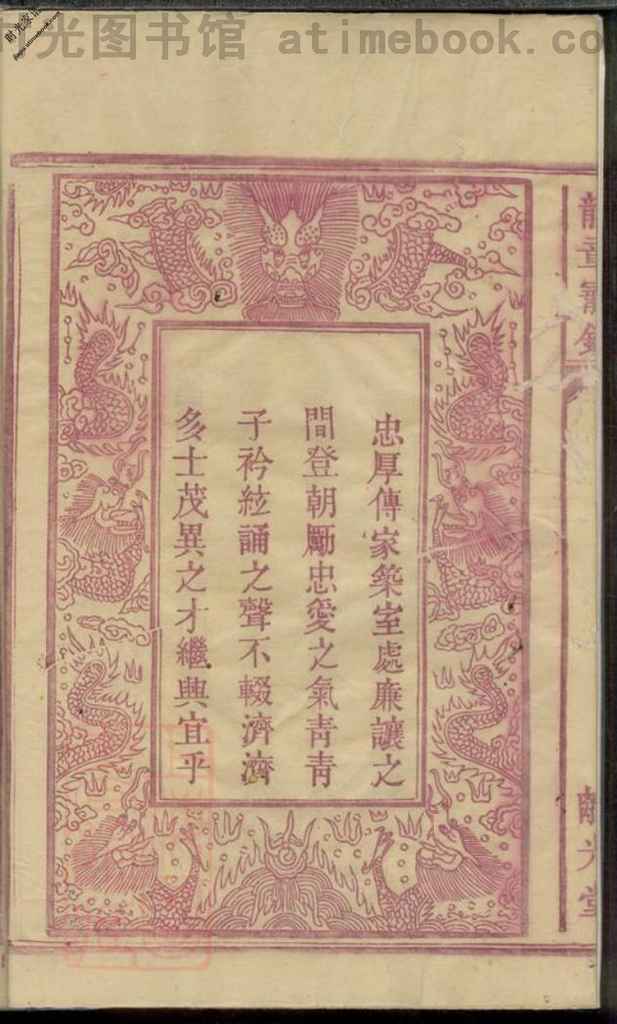 时光图书馆 atimebook.co
忠厚傳家築室處廉讓之
間登朝勵忠愛之氣青青
子衿絃誦之聲不輟濟濟
多士茂異之才繼興宜乎